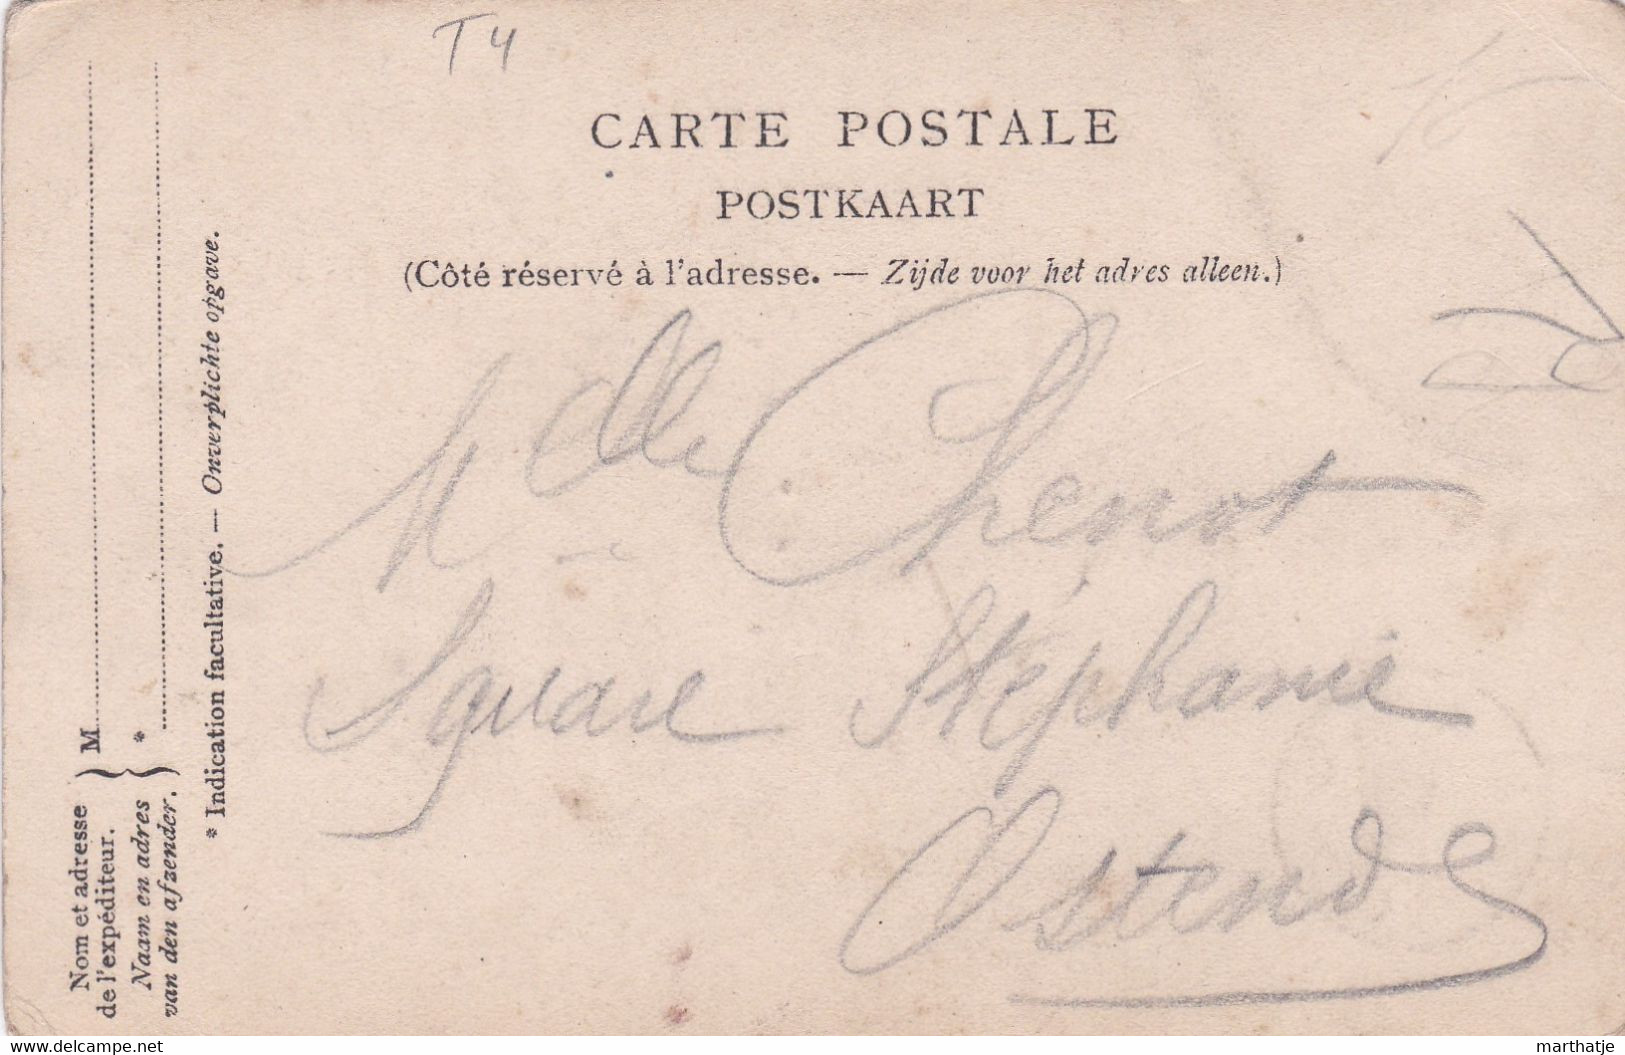 T 4
CARTE POSTALE
POSTKAART
(Côté réservé à l'adresse. — Zijde voor het adres alleen.)
Mlle Chenot
Square Stéphanie
Ostende
Nom et adresse
de l'expéditeur.
Naam en adres
van den afzender.
M
*
* Indication facultative. — Onverplichte opgave.
www.delcampe.net
marthatje